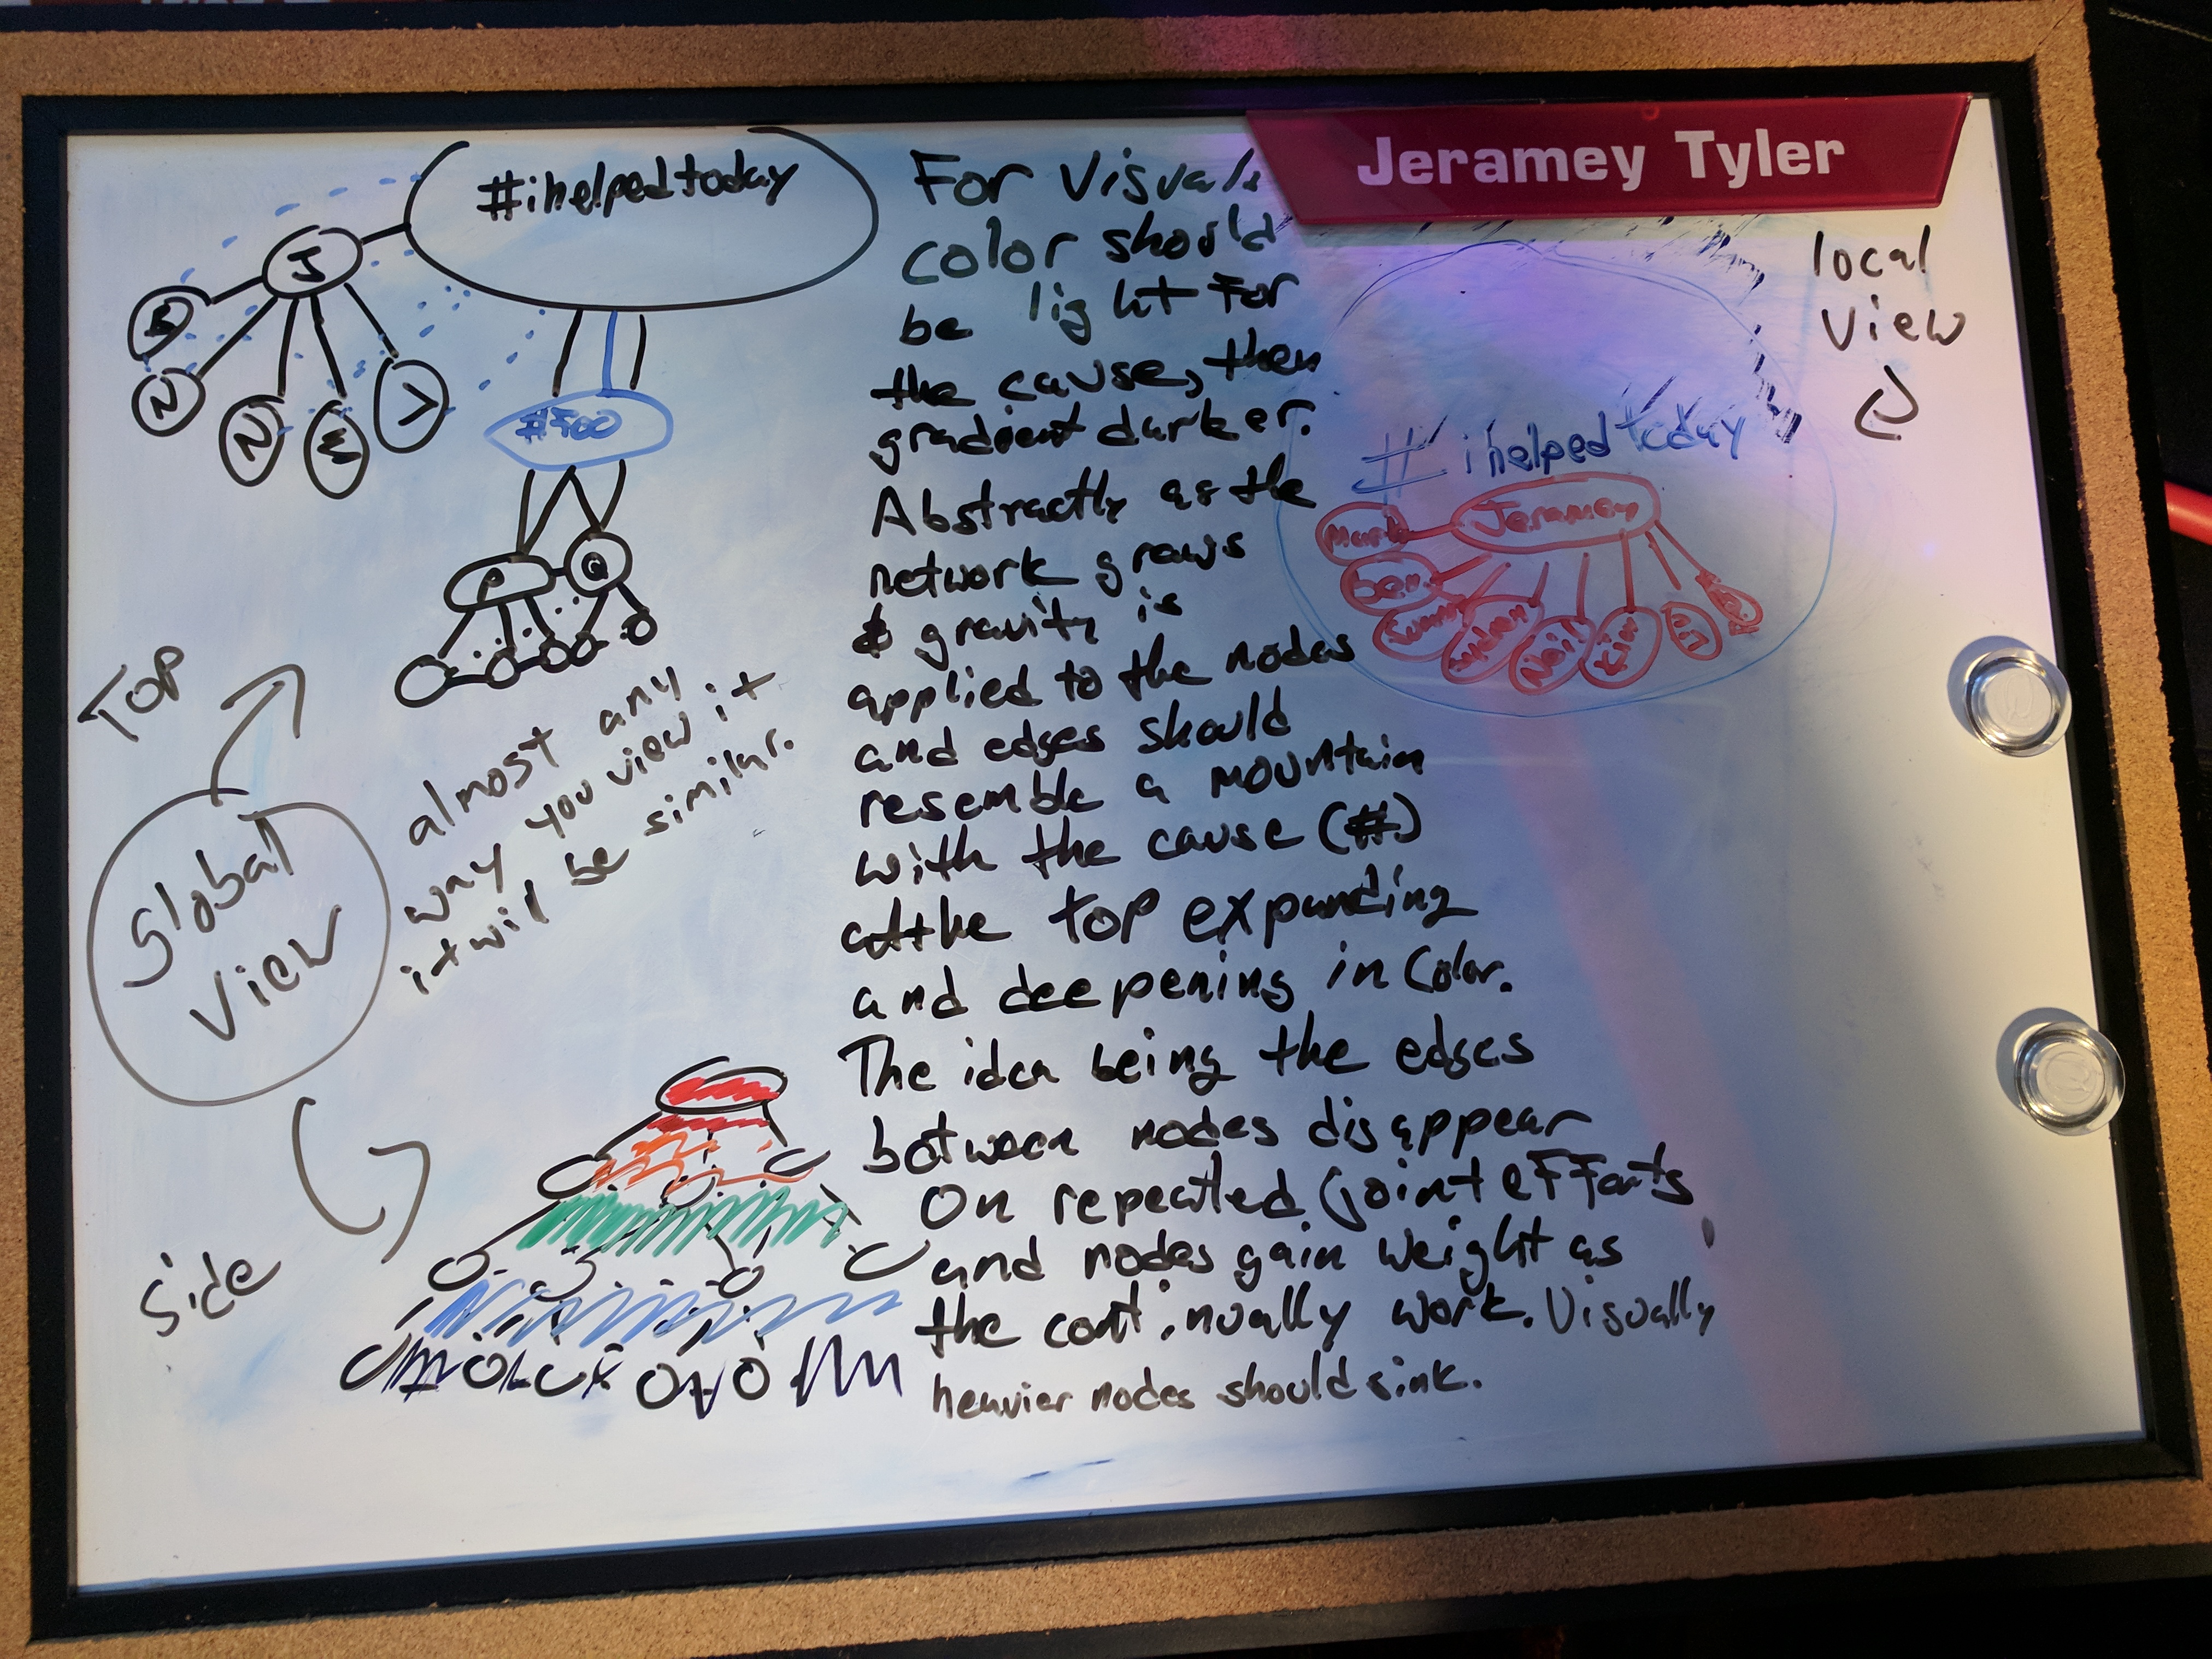 Jeramey Tyler
#ihelpedtoday
J
N
N
#FOO
P
Q
TOP
Global
View
Side
almost any
way you view it
it will be similar.
For Visuals
color should
be light For
the cause, then
gradient darker.
Abstractly as the
network grows
& gravity is
applied to the nodes
and edges should
resemble a mountain
with the cause (#)
at the top expanding
and deepening in Color.
The idea being the edges
between nodes disappear
On repeated joint eFForts
and nodes gain weight as
the continually work. Visually
heavier nodes should sink.
local
View
#ihelpedtoday
Jeramey
Mark
ben
Neil
Kim